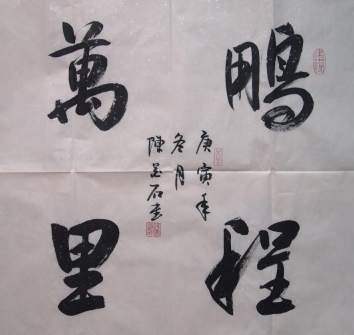 鵬程
萬里
庚寅年
冬月
陳石書